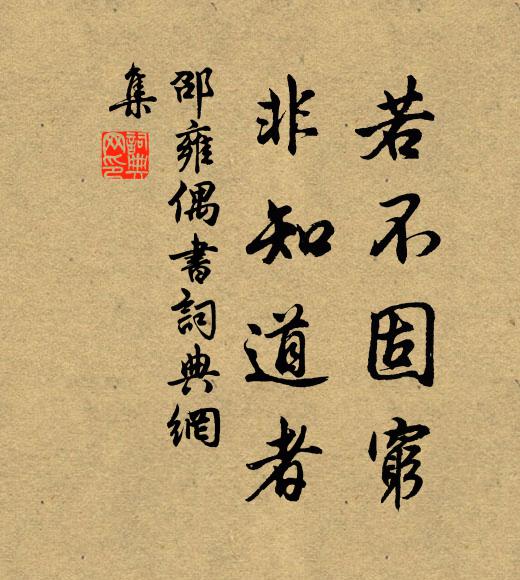 若不固窮
非知道者
邵雍偶書詞典網
集
詞典
网印